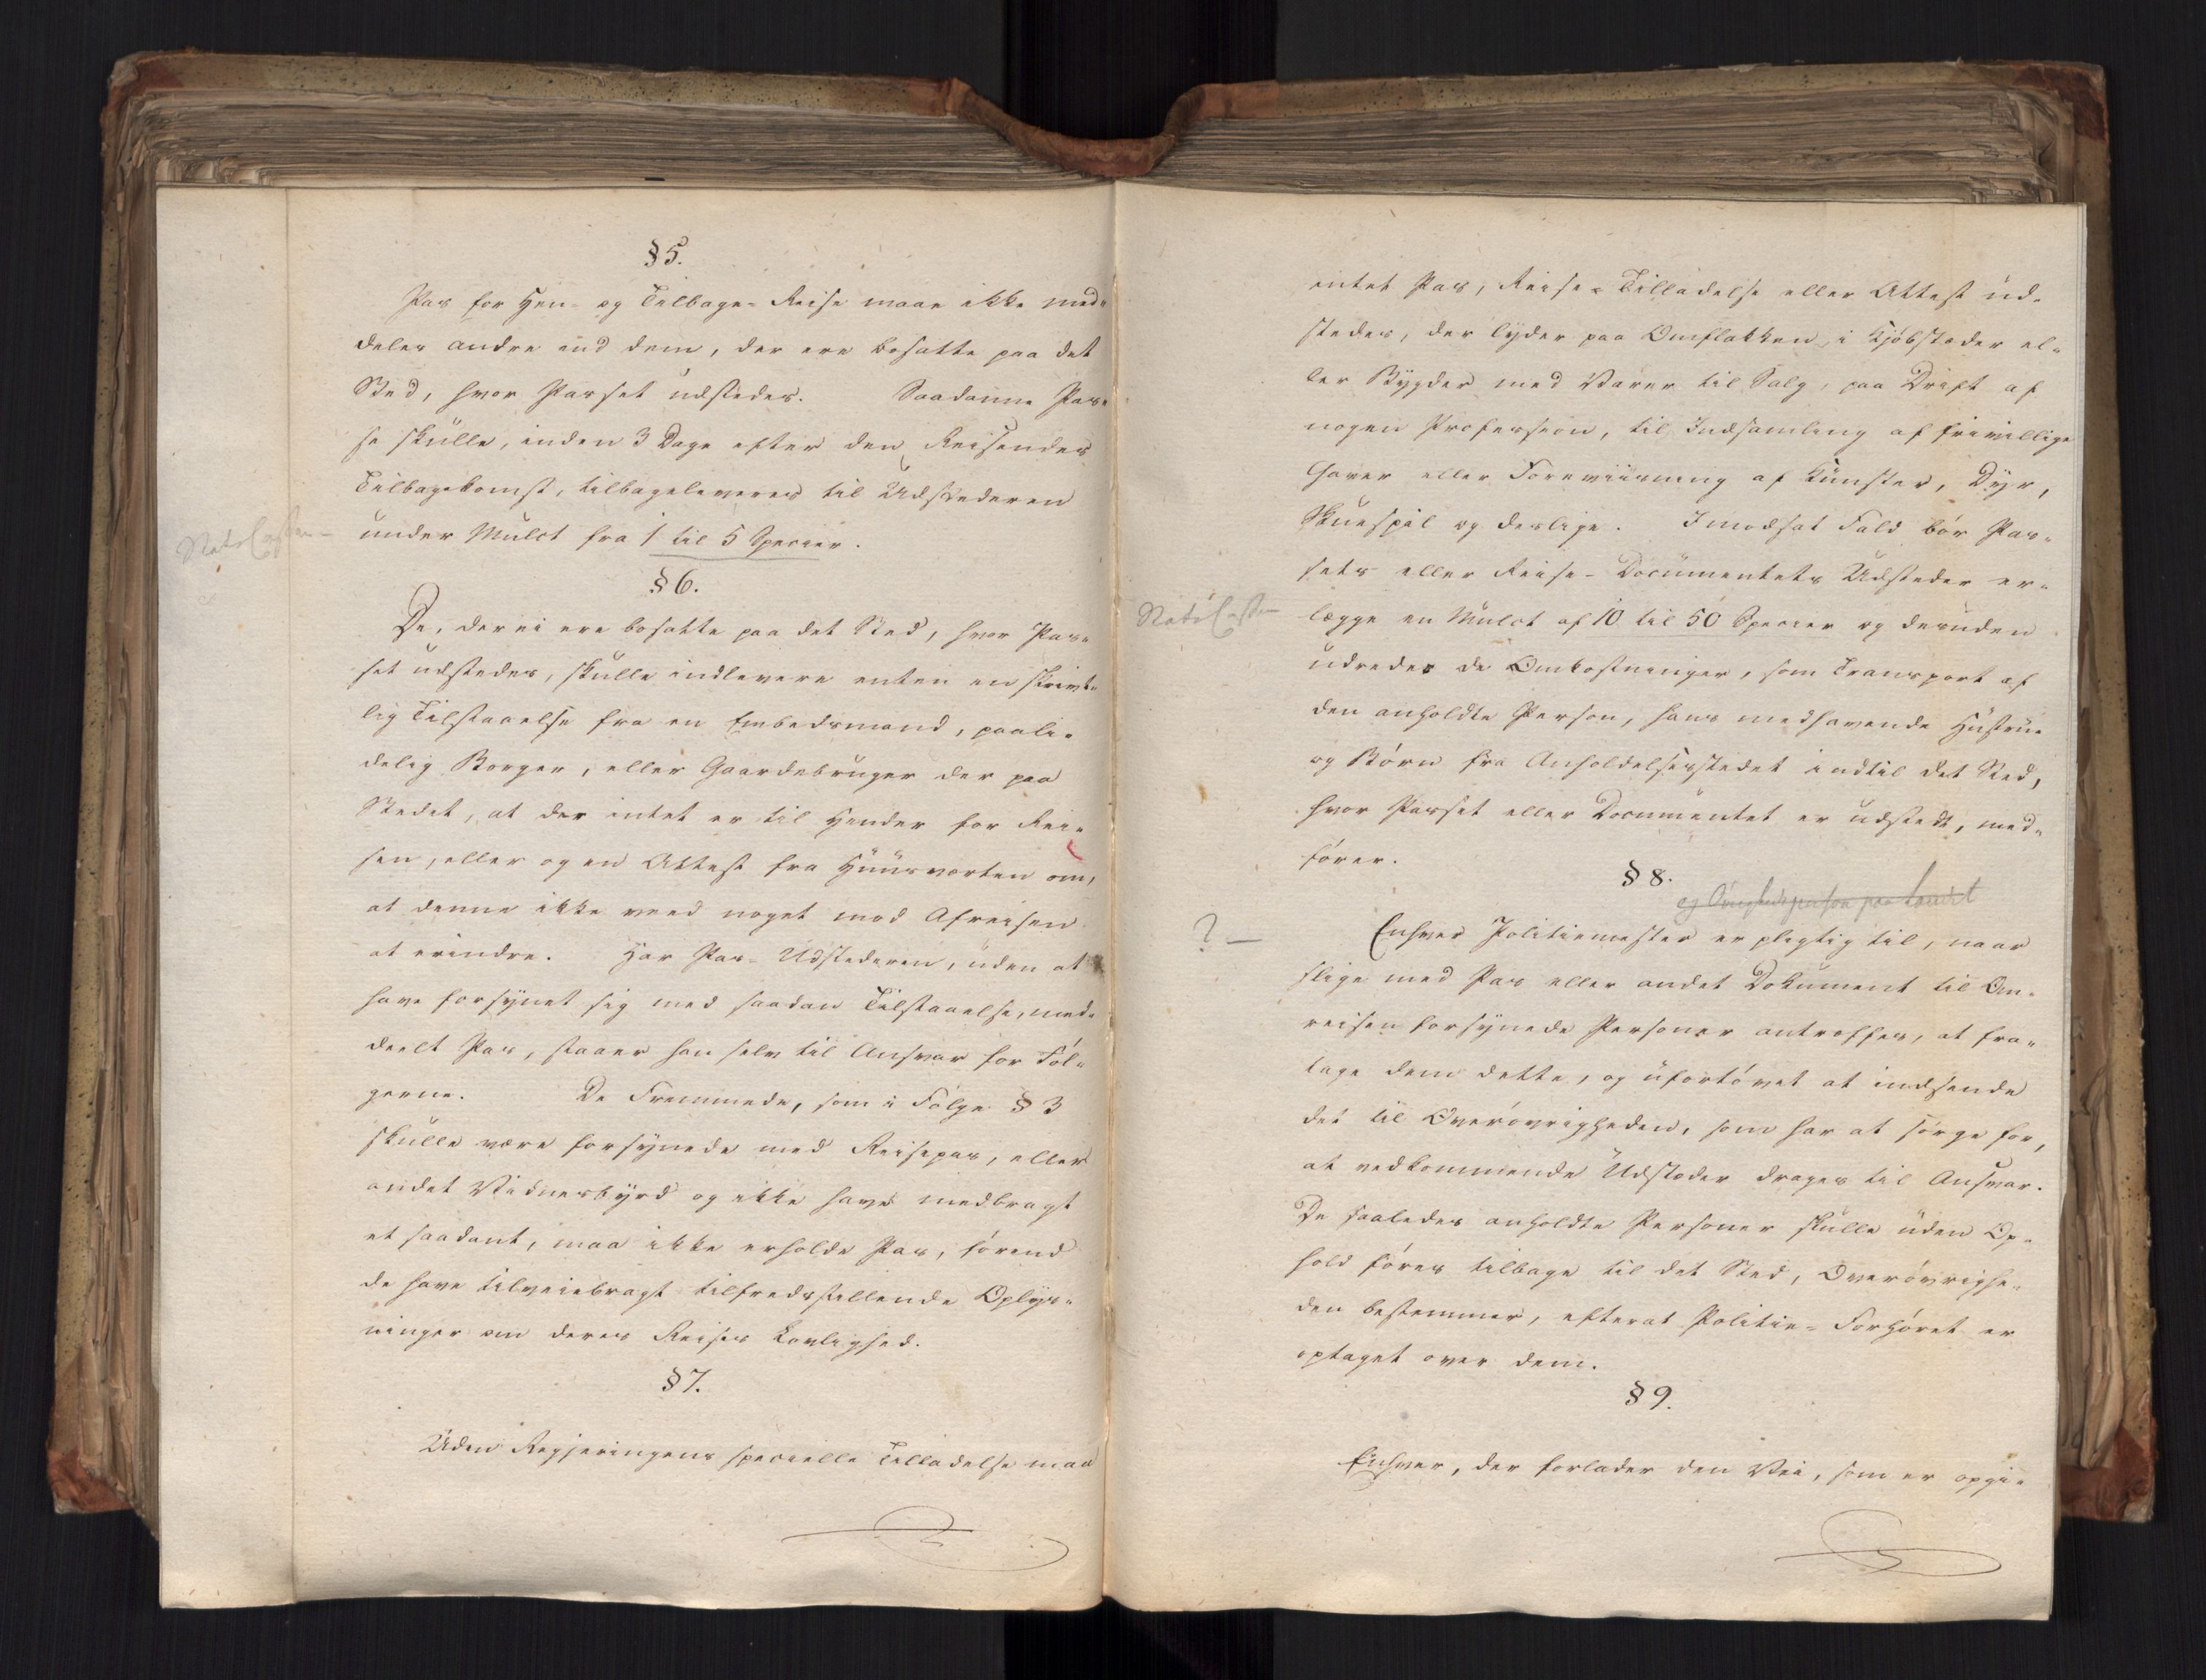 § 5.
Pas for Hen- og Tilbage-Reise maae ikke med-
deles andre end dem, der ere bosatte paa det
Sted, hvor Passet udstedes. Saadanne Pas-
se skulle, inden 3 Dage efter den Reisendes
Tilbagekomst, tilbageleveres til Udstederen
under Mulct fra 1 til 5 Specier.
§ 6.
De, der ei ere bosatte paa det Sted, hvor Pas-
set udstedes, skulle indlevere enten en skrivt-
lig Tilstaaelse fra en Embedsmand, paali-
delig Borger, eller Gaardebruger der paa
Stedet, at der intet er til Hinder for Rei-
sen, eller og en Attest fra Huusverten om,
at denne ikke veed noget mod Afreisen
at erindre. Har Pas-Udstederen, uden at
have forsynet sig med saadan Tilstaaelse, med-
deelt Pas, staaer han selv til Ansvar for Føl-
gerne. De Fremmede, som i Følge § 3
skulle være forsynede med Reisepas, eller
andet Vidnesbyrd og ikke have medbragt
et saadant, maa ikke erholde Pas, førend
de have tilveiebragt tilfredsstillende Oplys-
ninger om deres Reises Lovlighed.
§ 7.
Uden Regjeringens specielle Tilladelse maa
intet Pas, Reise-Tilladelse eller Attest ud-
stedes, der lyder paa Omflakken i Kjøbstæder el-
ler Bygder med Varer til Salg, paa Drift af
nogen Profession, til Indsamling af frivillige
Gaver eller Foreviisning af Kunster, Dyr,
Skuespil og deslige. I modsat Fald bør Pas-
sets eller Reise-Documentets Udsteder er-
lægge en Mulct af 10 til 50 Specier og desuden
udredes de Omkostninger, som Transport af
den anholdte Person, hans medhavende Hustrue
og Børn fra Anholdelsesstedet indtil det Sted,
hvor Passet eller Documentet er udstedt, med-
fører.
§ 8.
og Øvrighedsperson paa Landet
? — Enhver Politiemester er pligtig til, naar
slige med Pas eller andet Dokument til Om-
reisen forsynede Personer antræffes, at fra-
tage dem dette, og ufortøvet at indsende
det til Overøvrigheden, som har at sørge for,
at vedkommende Udsteder drages til Ansvar.
De saaledes anholdte Personer skulle uden Op-
hold føres tilbage til det Sted, Overøvrighe-
den bestemmer, efterat Politie-Forhøret er
optaget over dem.
§ 9.
Enhver, der forlader den Vei, som er opgi-